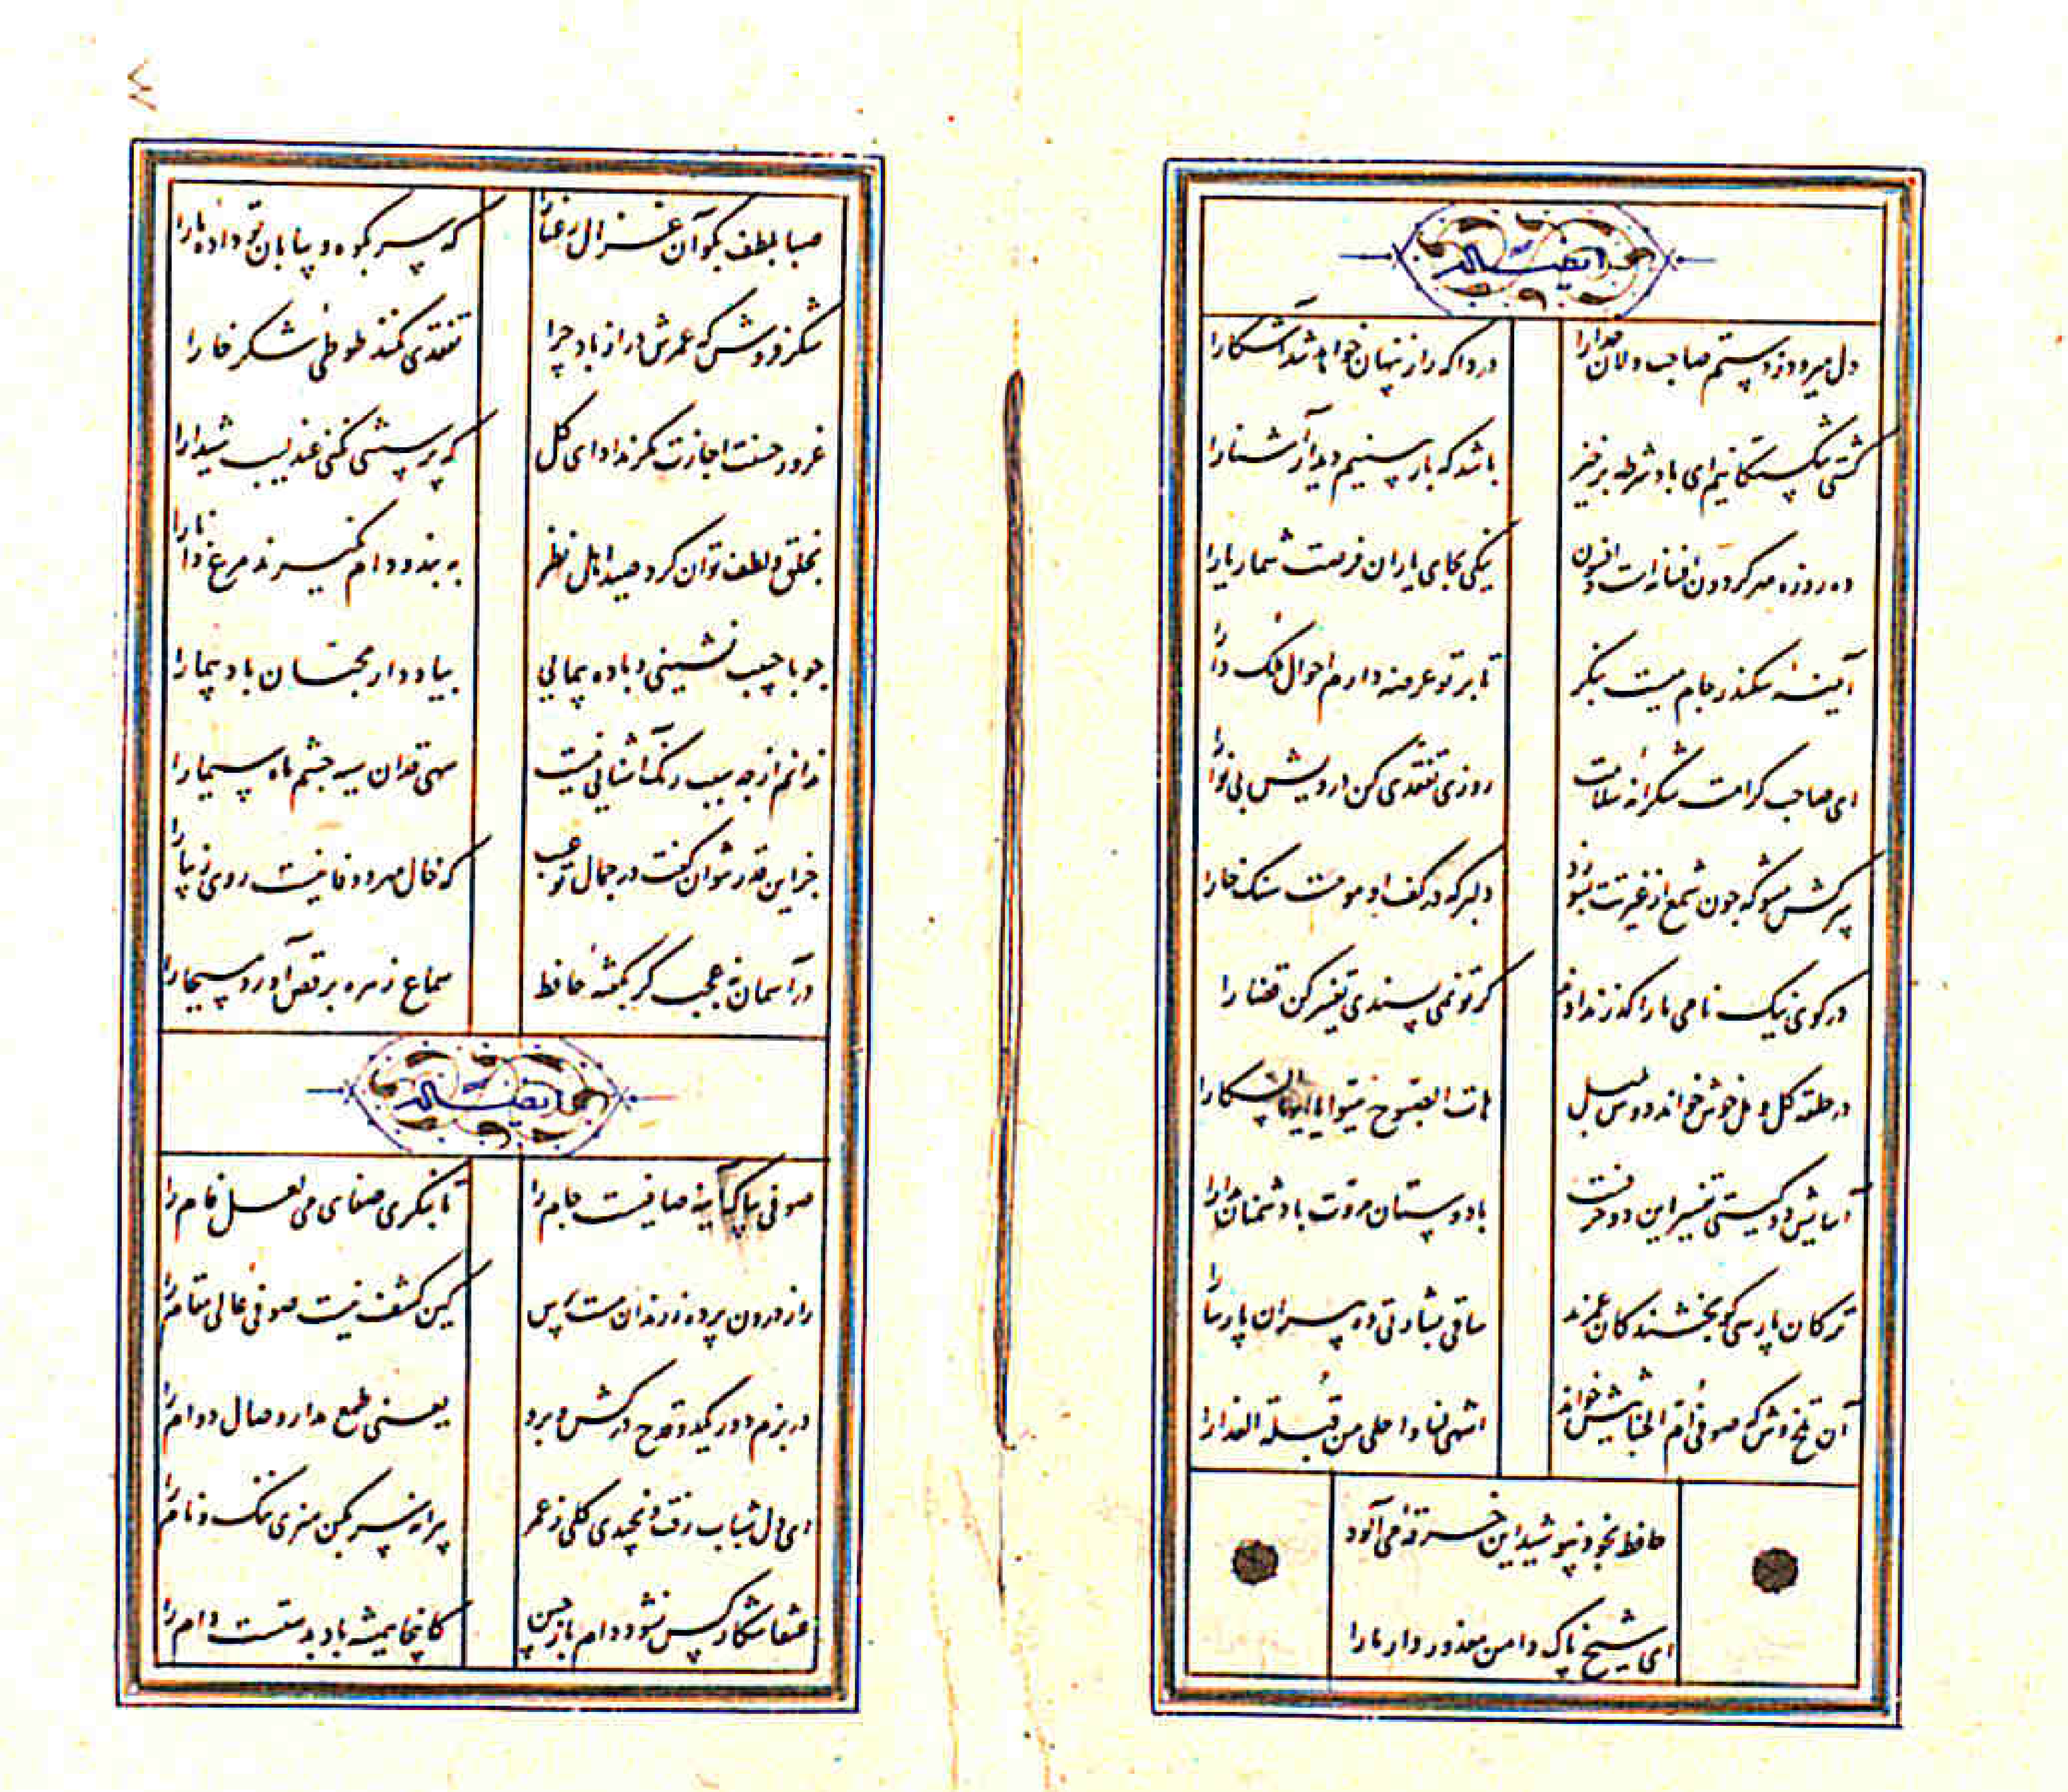 ایضاً له
دل میرود ز دستم صاحب دلان خدا را
دردا که راز پنهان خواهد شد آشکارا
کشتی شکستگانیم ای باد شرطه برخیز
باشد که باز بینیم دیدار آشنا را
ده روزه مهر گردون افسانه است و افسون
نیکی بجای یاران فرصت شمار یارا
آینهٔ سکندر جام میست بنگر
تا بر تو عرضه دارم احوال ملک دارا
ای صاحب کرامت شکرانه سلامت
روزی تفقدی کن درویش بی نوا را
سرکش مشو که چون شمع از غیرتت بسوزد
دلبر که در کف او مومست سنک خارا
در کوی نیک نامی ما را گذر ندادند
گر تو نمی پسندی تغییر کن قضا را
در حلقه گل و مل خوش خواند دوش بلبل
هات الصبوح حیوا یا ایها السکارا
آسایش دو گیتی تفسیر این دو حرفست
با دوستان مروت با دشمنان مدارا
ترکان پارسی گو بخشندگان عمرند
ساقی بشارتی ده پیران پارسا را
آن تلخ وش که صوفی ام الخبائثش خواند
اشهی لنا و احلی من قبلة العذارا
حافظ بخود نپوشید این خرقه می آلود
ای شیخ پاک دامن معذور دار ما را
صبا بلطف بگو آن غزال رعنا را
که سر بکوه و بیابان تو داده ما را
شکر فروش که عمرش دراز باد چرا
تفقدی نکند طوطی شکر خارا
غرور حسنت اجازت مگر نداد ای گل
که پرسشی نکنی عندلیب شیدا را
بخلق و لطف توان کرد صید اهل نظر
به بند و دام نگیرند مرغ دانا را
چو با حبیب نشینی و باده پیمایی
بیاد دار محبان باد پیما را
ندانم از چه سبب رنگ آشنایی نیست
سهی قدان سیه چشم ماه سیما را
جز این قدر نتوان گفت در جمال تو عیب
که خال مهر و وفا نیست روی زیبا را
در آسمان نه عجب گر بگفتهٔ حافظ
سماع زهره برقص آورد مسیحا را
ایضاً له
صوفی بیا که آینه صافیست جام را
تا بنگری صفای می لعل فام را
راز درون پرده ز رندان مست پرس
کین کشف نیست صوفی عالی مقام را
در بزم دور یکدو قدح درکش و برو
یعنی طمع مدار وصال دوام را
ای دل شباب رفت و نچیدی گلی ز عمر
پیرانه سر بکن هنری ننک و نام را
عنقا شکار کس نشود دام باز چین
کانجا همیشه باد بدستست دام را